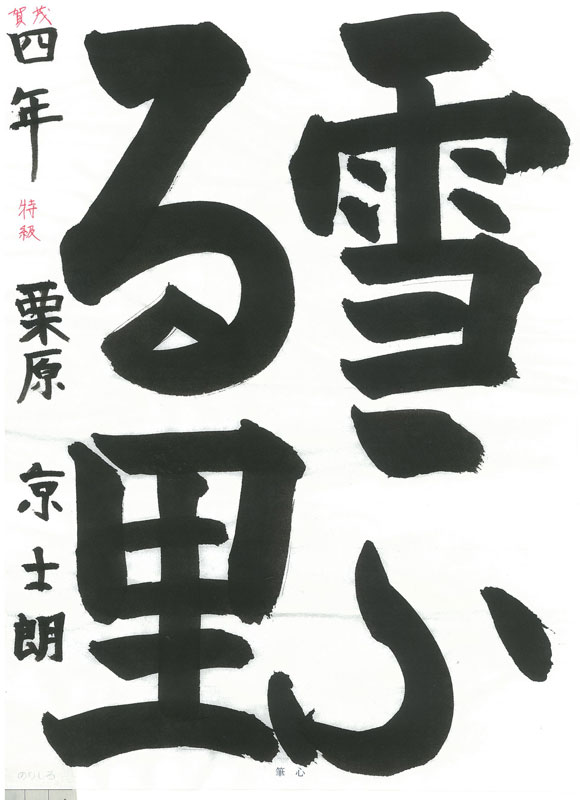 雪ふ
る里
茂賀
四年 特級 栗原 京士朗
筆心
のりしろ